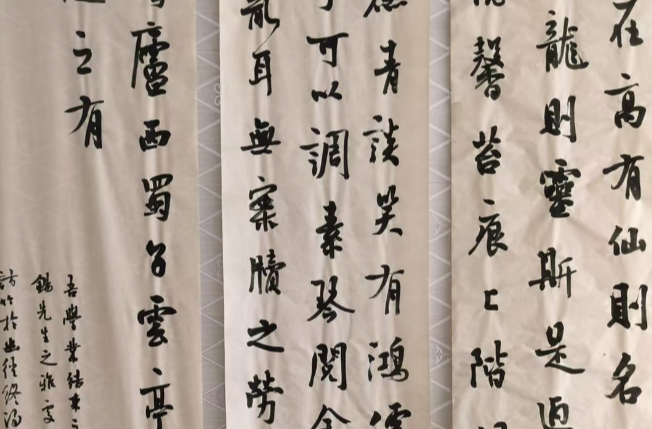 在高有仙則名
龍則靈斯是
馨苔痕上階
青談笑有鴻儒
可以調素琴閱金
亂耳無案牘之勞
廬西蜀子雲亭
之有
吾學業結束之
錫先生之雅
訪竹於幽徑